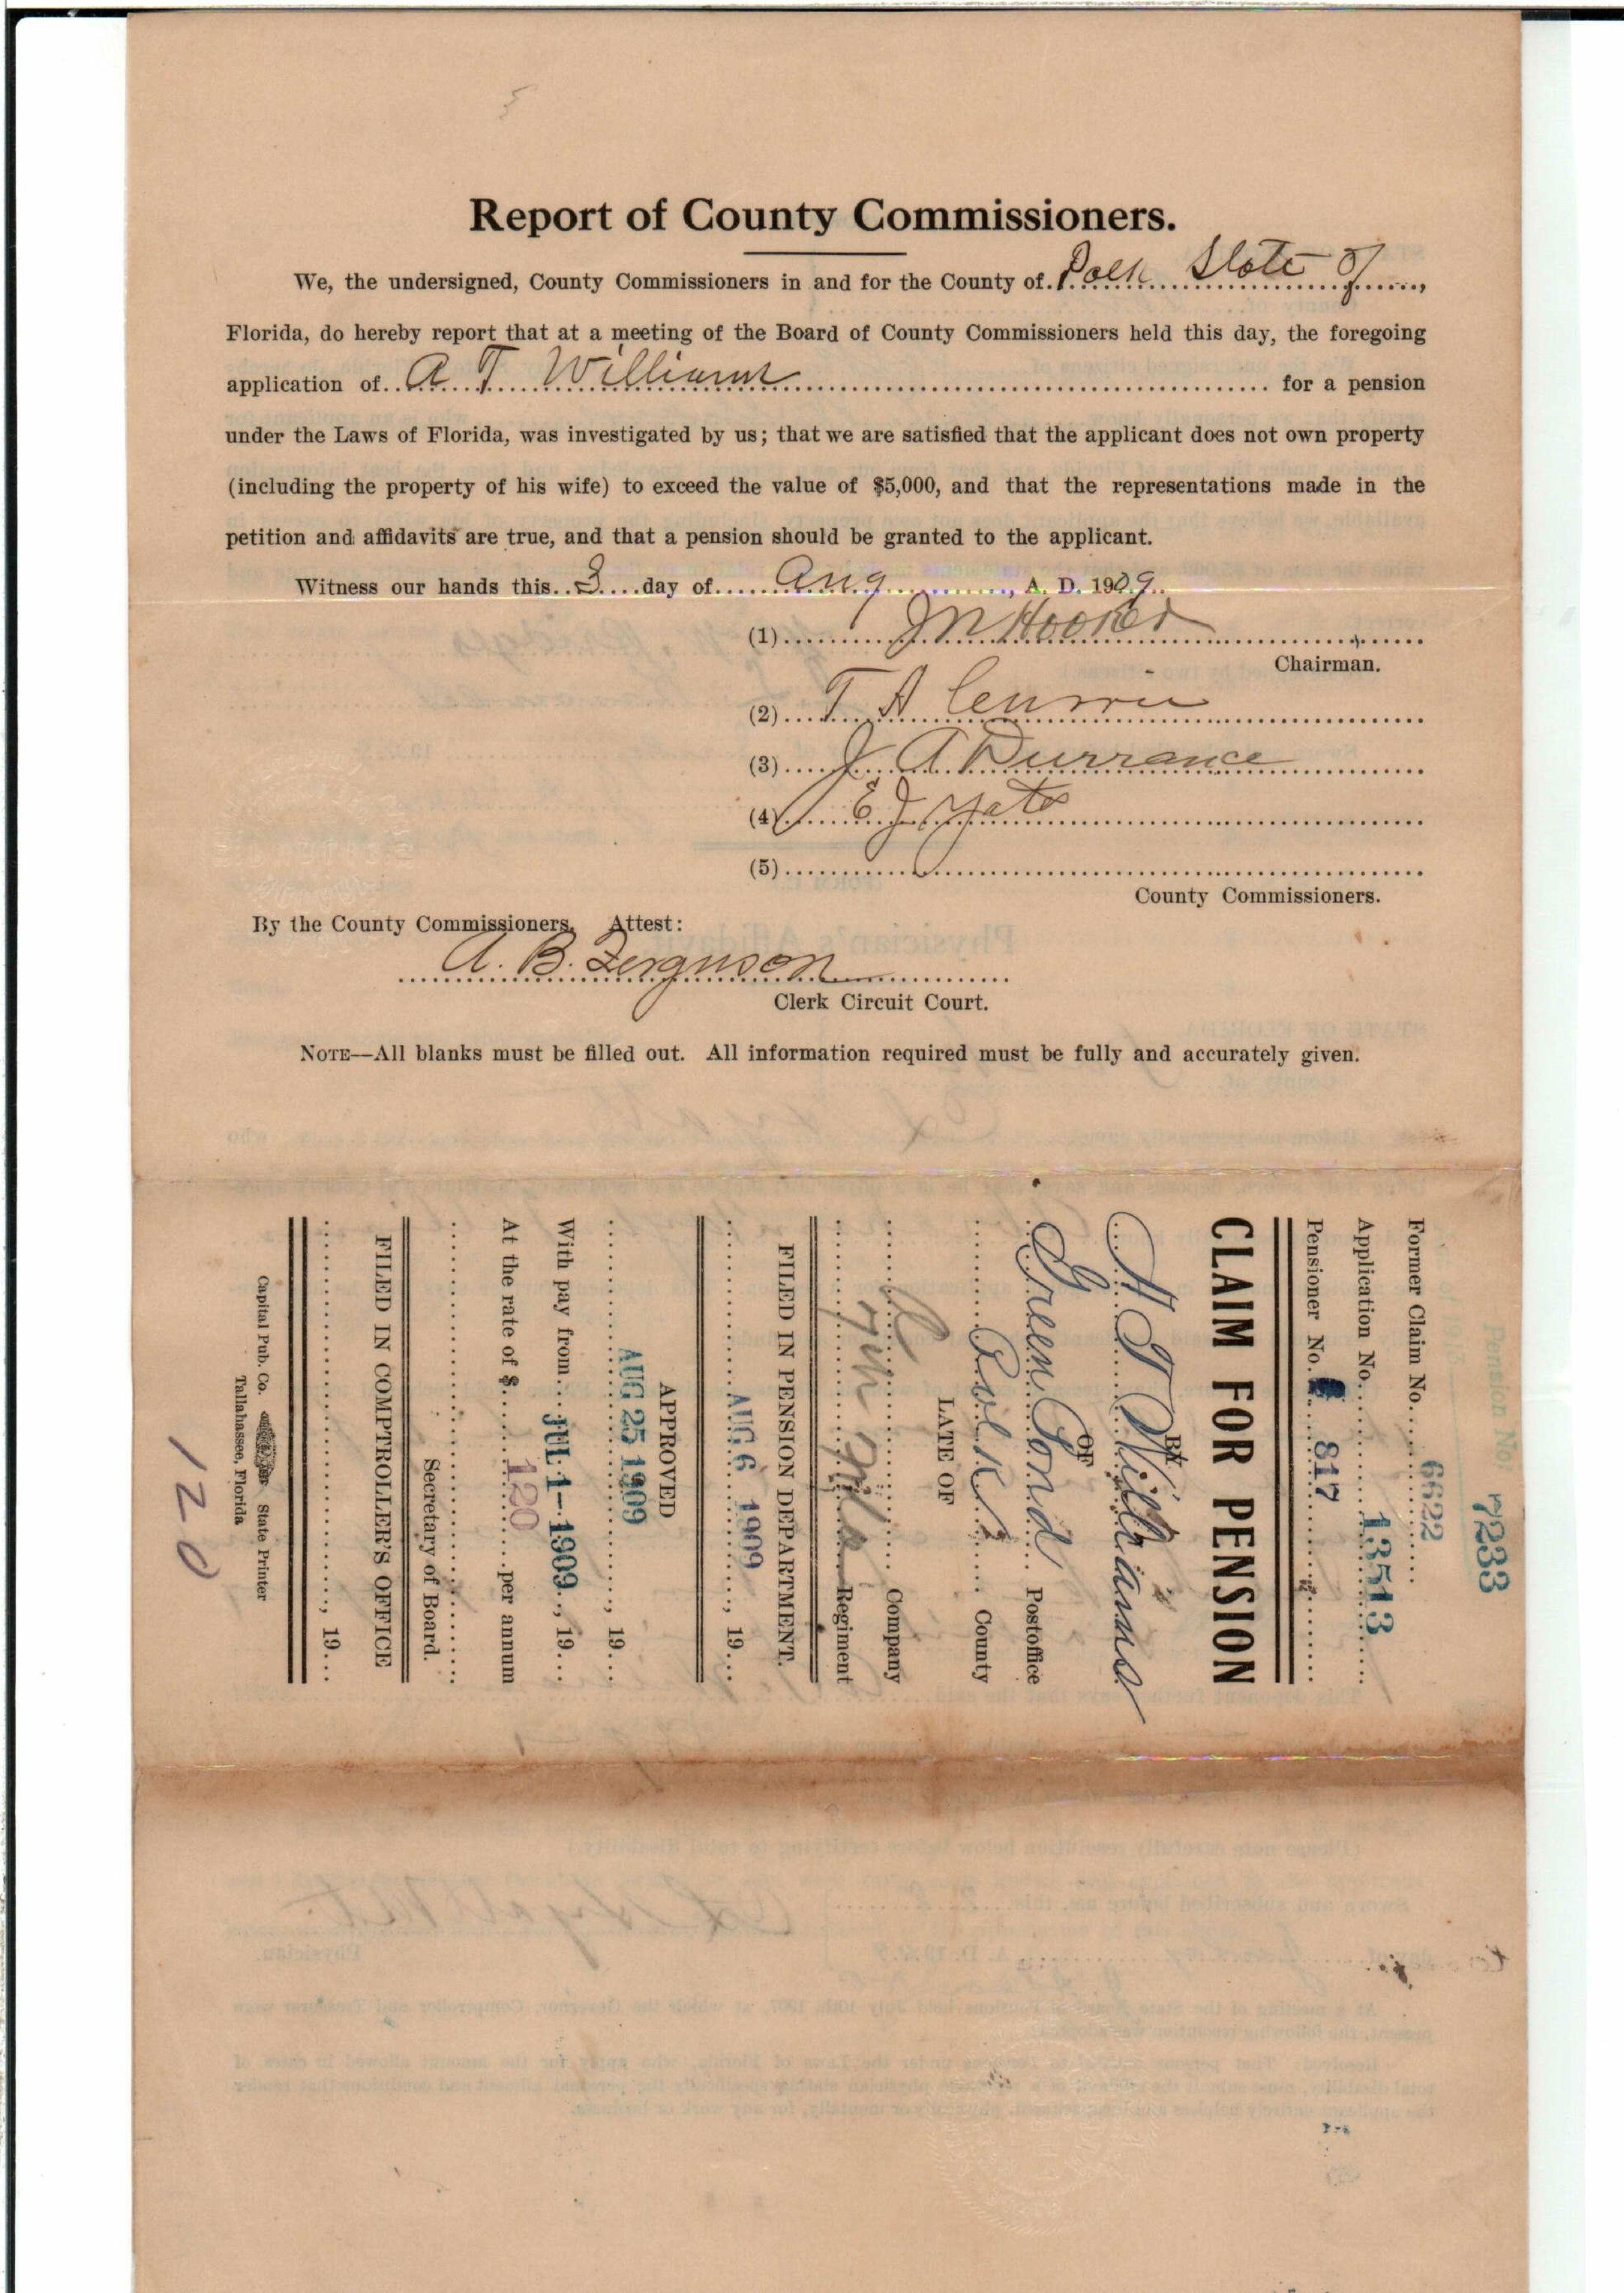 Report of County Commissioners.
We, the undersigned, County Commissioners in and for the County of Polk State of,
Florida, do hereby report that at a meeting of the Board of County Commissioners held this day, the foregoing
application of A T Williams for a pension
under the Laws of Florida, was investigated by us; that we are satisfied that the applicant does not own property
(including the property of his wife) to exceed the value of $5,000, and that the representations made in the
petition and affidavits are true, and that a pension should be granted to the applicant.
Witness our hands this 3 day of Aug, A. D. 1909.
(1) J N Hooker
Chairman.
(2) T A
(3) J A Durrance
(4) E J Yates
(5)
County Commissioners.
By the County Commissioners, Attest:
A. B. Ferguson
Clerk Circuit Court.
NOTE—All blanks must be filled out. All information required must be fully and accurately given.
Pension No: 7233
Former Claim No. 6622
Application No. 13513
Pensioner No. 817
CLAIM FOR PENSION
BY
A T Williams
OF
Green Pond Postoffice
Polk County
LATE OF
Company
7th Fla Regiment
FILED IN PENSION DEPARTMENT.
AUG 6 1909, 19
APPROVED
AUG 25 1909, 19
With pay from JUL 1-1909, 19
At the rate of $ 120 per annum
Secretary of Board.
FILED IN COMPTROLLER'S OFFICE
, 19
Capital Pub. Co. State Printer
Tallahassee, Florida
120